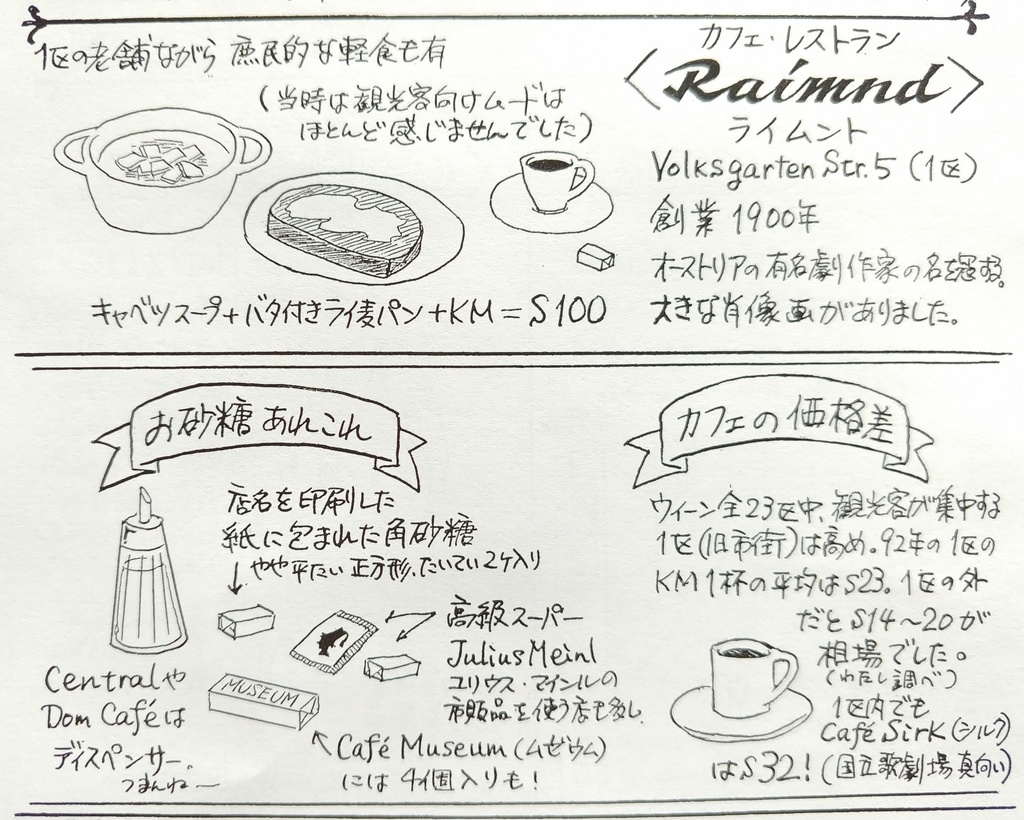 1区の老舗ながら 庶民的な軽食も有
(当時は観光客向けムードは
ほとんど感じませんでした)
キャベツスープ+バタ付きライ麦パン+KM=S100
カフェ・レストラン
〈Raimnd〉
ライムント
Volksgarten Str.5 (1区)
創業 1900年
オーストリアの有名劇作家の名を冠する。
大きな肖像画がありました。
お砂糖あれこれ
店名を印刷した
紙に包まれた角砂糖
やや平たい正方形、たいてい2ヶ入り
高級スーパー
Julius Meinl
ユリウス・マインルの
市販品を使う店も多し
MUSEUM
Café Museum (ムゼウム)
には 4個入りも!
Centralや
Dom Caféは
ディスペンサー。
つまんねー
カフェの価格差
ウィーン全23区中、観光客が集中する
1区(旧市街)は高め。92年の1区の
KM1杯の平均はS23。1区の外
だとS14~20が
相場でした。
(わたし調べ)
1区内でも
Café Sirk (シルク)
はS32! (国立歌劇場真向い)